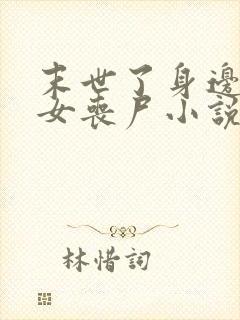 末世了身邊
女喪尸小說
林惜詞